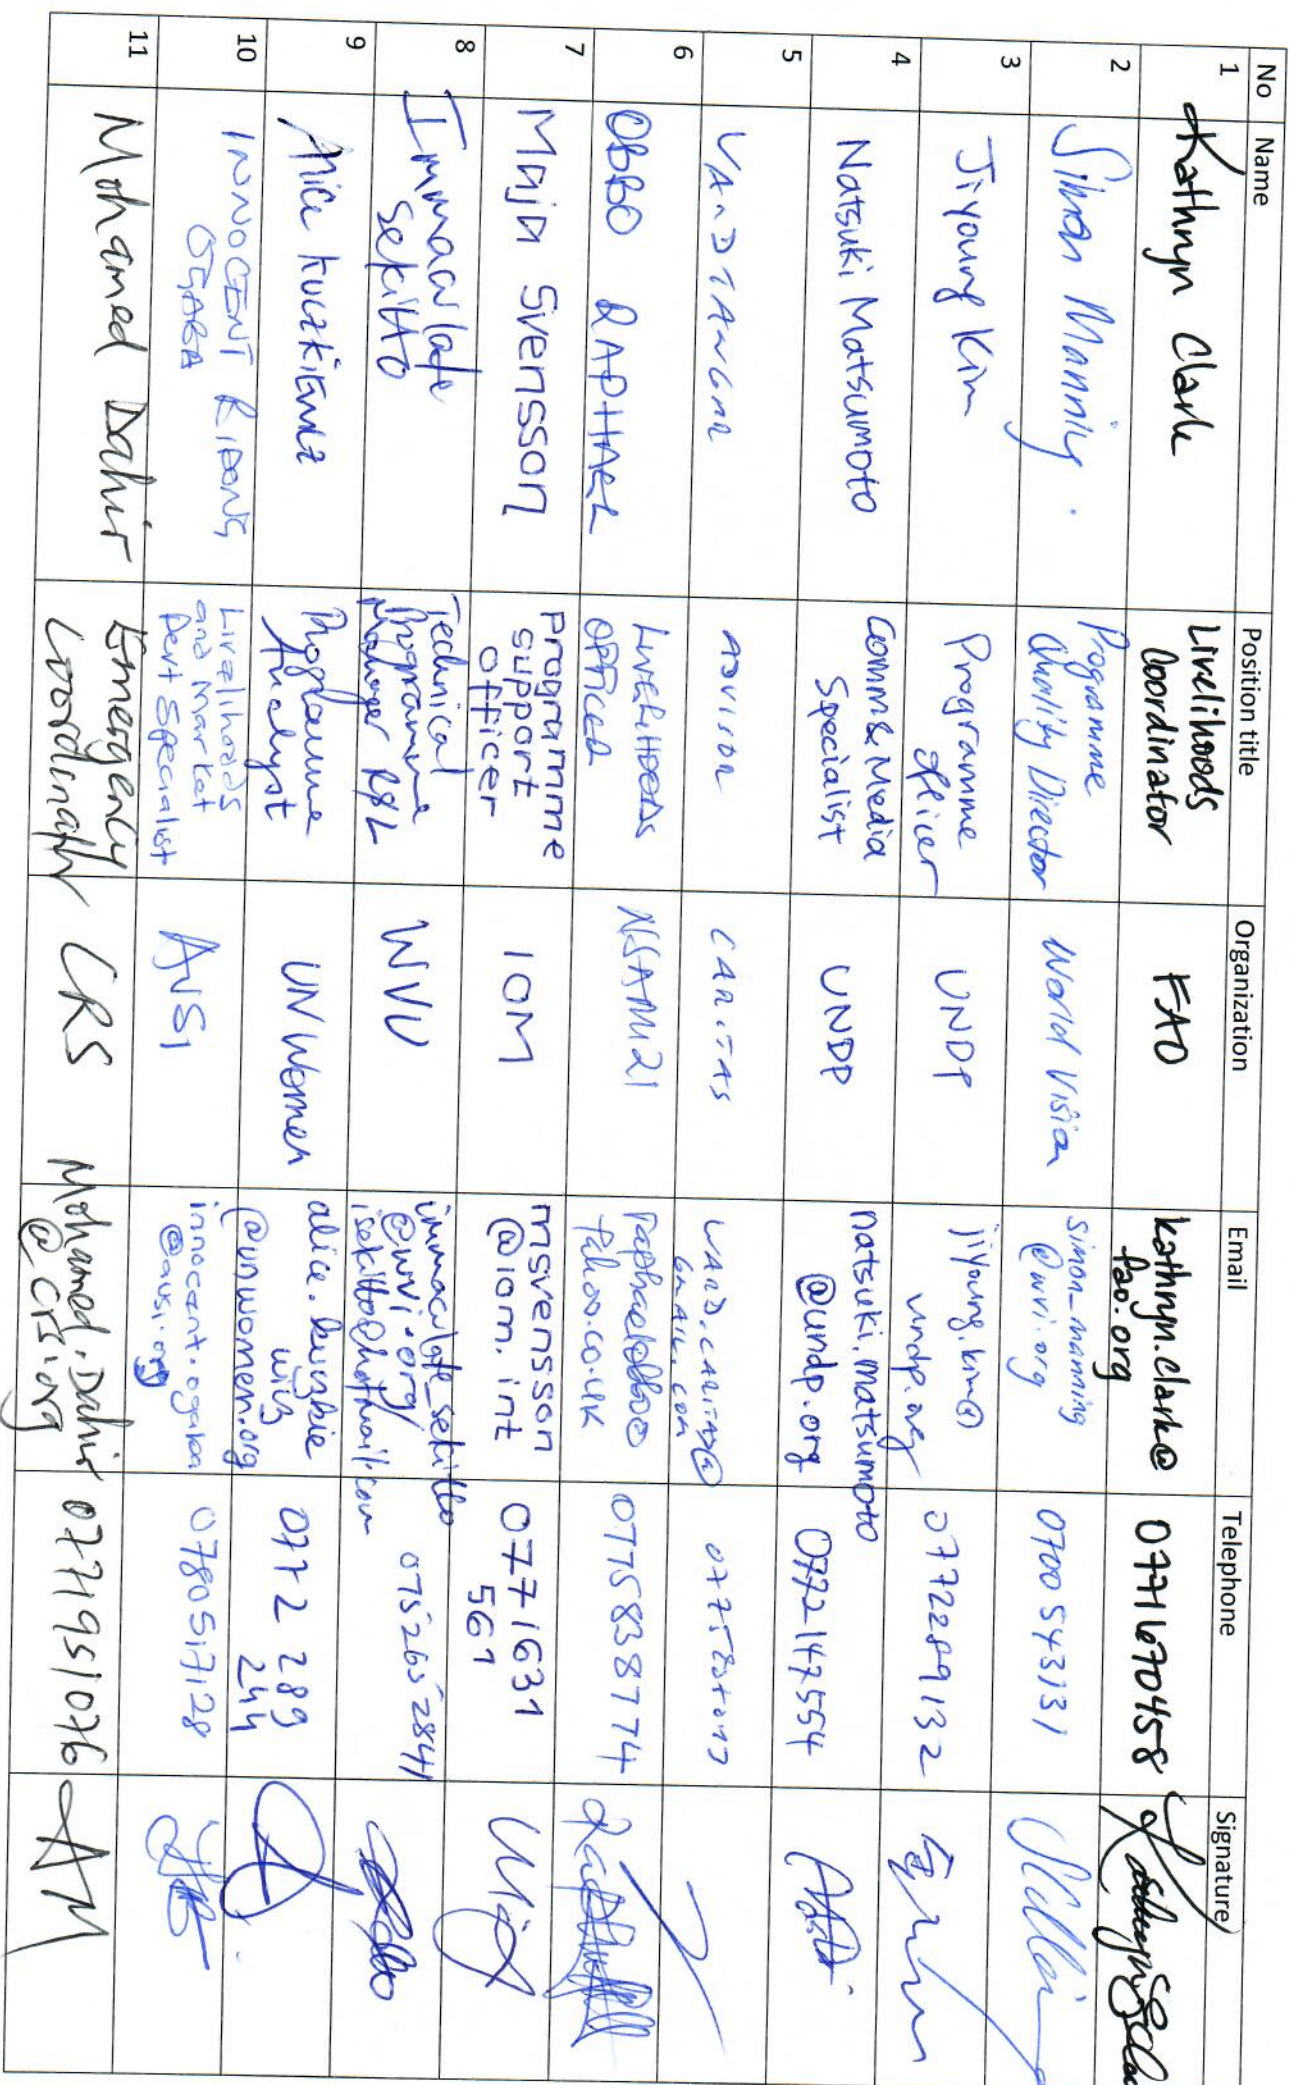 No Name Position title Organization Email Telephone Signature
1 Kathryn Clark Livelihoods Coordinator FAO kathryn.clark@fao.org 0771670458
2 Simon Manning. Programme Quality Director World Vision simon_manning@wvi.org 0700543131
3 Jiyoung Kim Programme Officer UNDP jiyoung.kim@undp.org 0772289132
4 Natsuki Matsumoto Comm & Media Specialist UNDP natsuki.matsumoto@undp.org
5 ADVISOR CARITAS
6 OBBO RAPHAEL LIVELIHOODS OFFICER 0775838774
7 Maja Svensson programme support officer IOM msvensson@iom.int 0771631 561
8 Immaculate Sekitto Technical Programme Manager R&L WVU immaculate_sekitto@wvi.org/ isekitto@hotmail.com 0752652841
9 Alice Programme Analyst UN Women @unwomen.org 0772 289 244
10 INNOCENT OGABA Livelihoods and Market Devt Specialist AVSI innocent.ogaba@avsi.org 0780517128
11 Mohamed Dahir Emergency Coordinator CRS Mohamed.Dahir@crs.org 0771951076